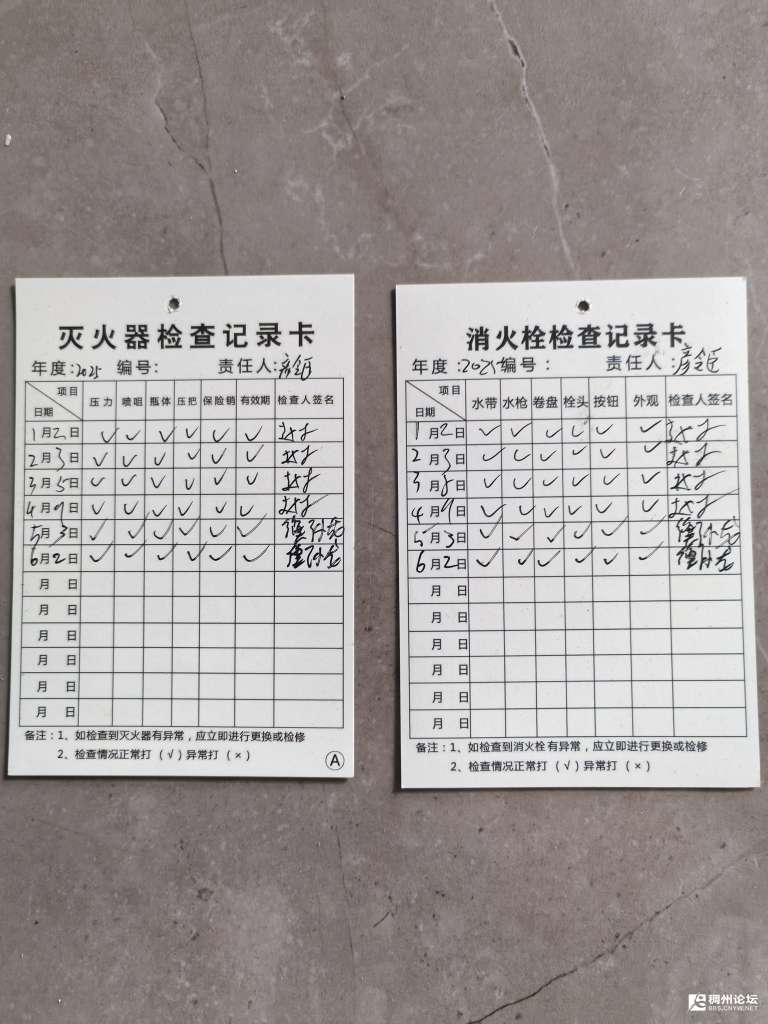 灭火器检查记录卡
年度:2025 编号: 责任人:
项目 日期 压力 喷咀 瓶体 压把 保险销 有效期 检查人签名
1月2日 √ √ √ √ √ √
2月3日 √ √ √ √ √ √
3月5日 √ √ √ √ √ √
4月9日 √ √ √ √ √ √
5月3日 √ √ √ √ √ √
6月2日 √ √ √ √ √ √
月 日
月 日
月 日
月 日
月 日
月 日
备注:1、如检查到灭火器有异常,应立即进行更换或检修
2、检查情况正常打(√)异常打(×)
A
消火栓检查记录卡
年度:2025编号: 责任人:
项目 日期 水带 水枪 卷盘 栓头 按钮 外观 检查人签名
1月2日 √ √ √ √ √ √
2月3日 √ √ √ √ √ √
3月5日 √ √ √ √ √ √
4月9日 √ √ √ √ √ √
5月3日 √ √ √ √ √ √
6月2日 √ √ √ √ √ √
月 日
月 日
月 日
月 日
月 日
月 日
备注:1、如检查到消火栓有异常,应立即进行更换或检修
2、检查情况正常打(√)异常打(×)
稠州论坛
BBS.CNYW.NET